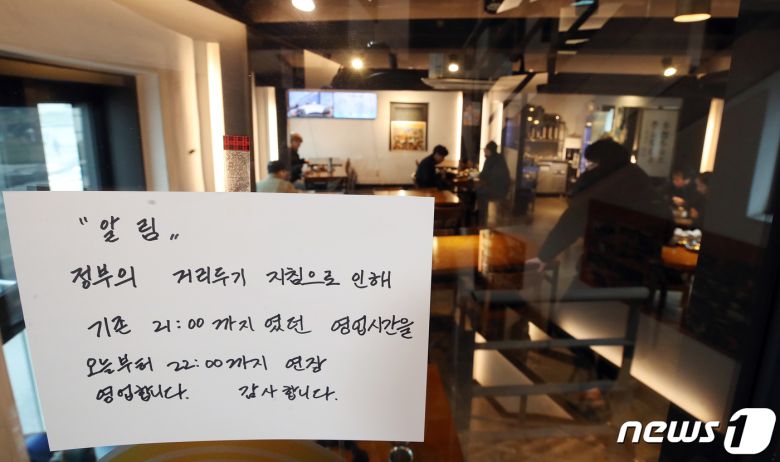 "알림"
정부의 거리두기 지침으로 인해
기존 21:00 까지 였던 영업시간을
오늘부터 22:00까지 연장
영업합니다. 감사합니다.
news1